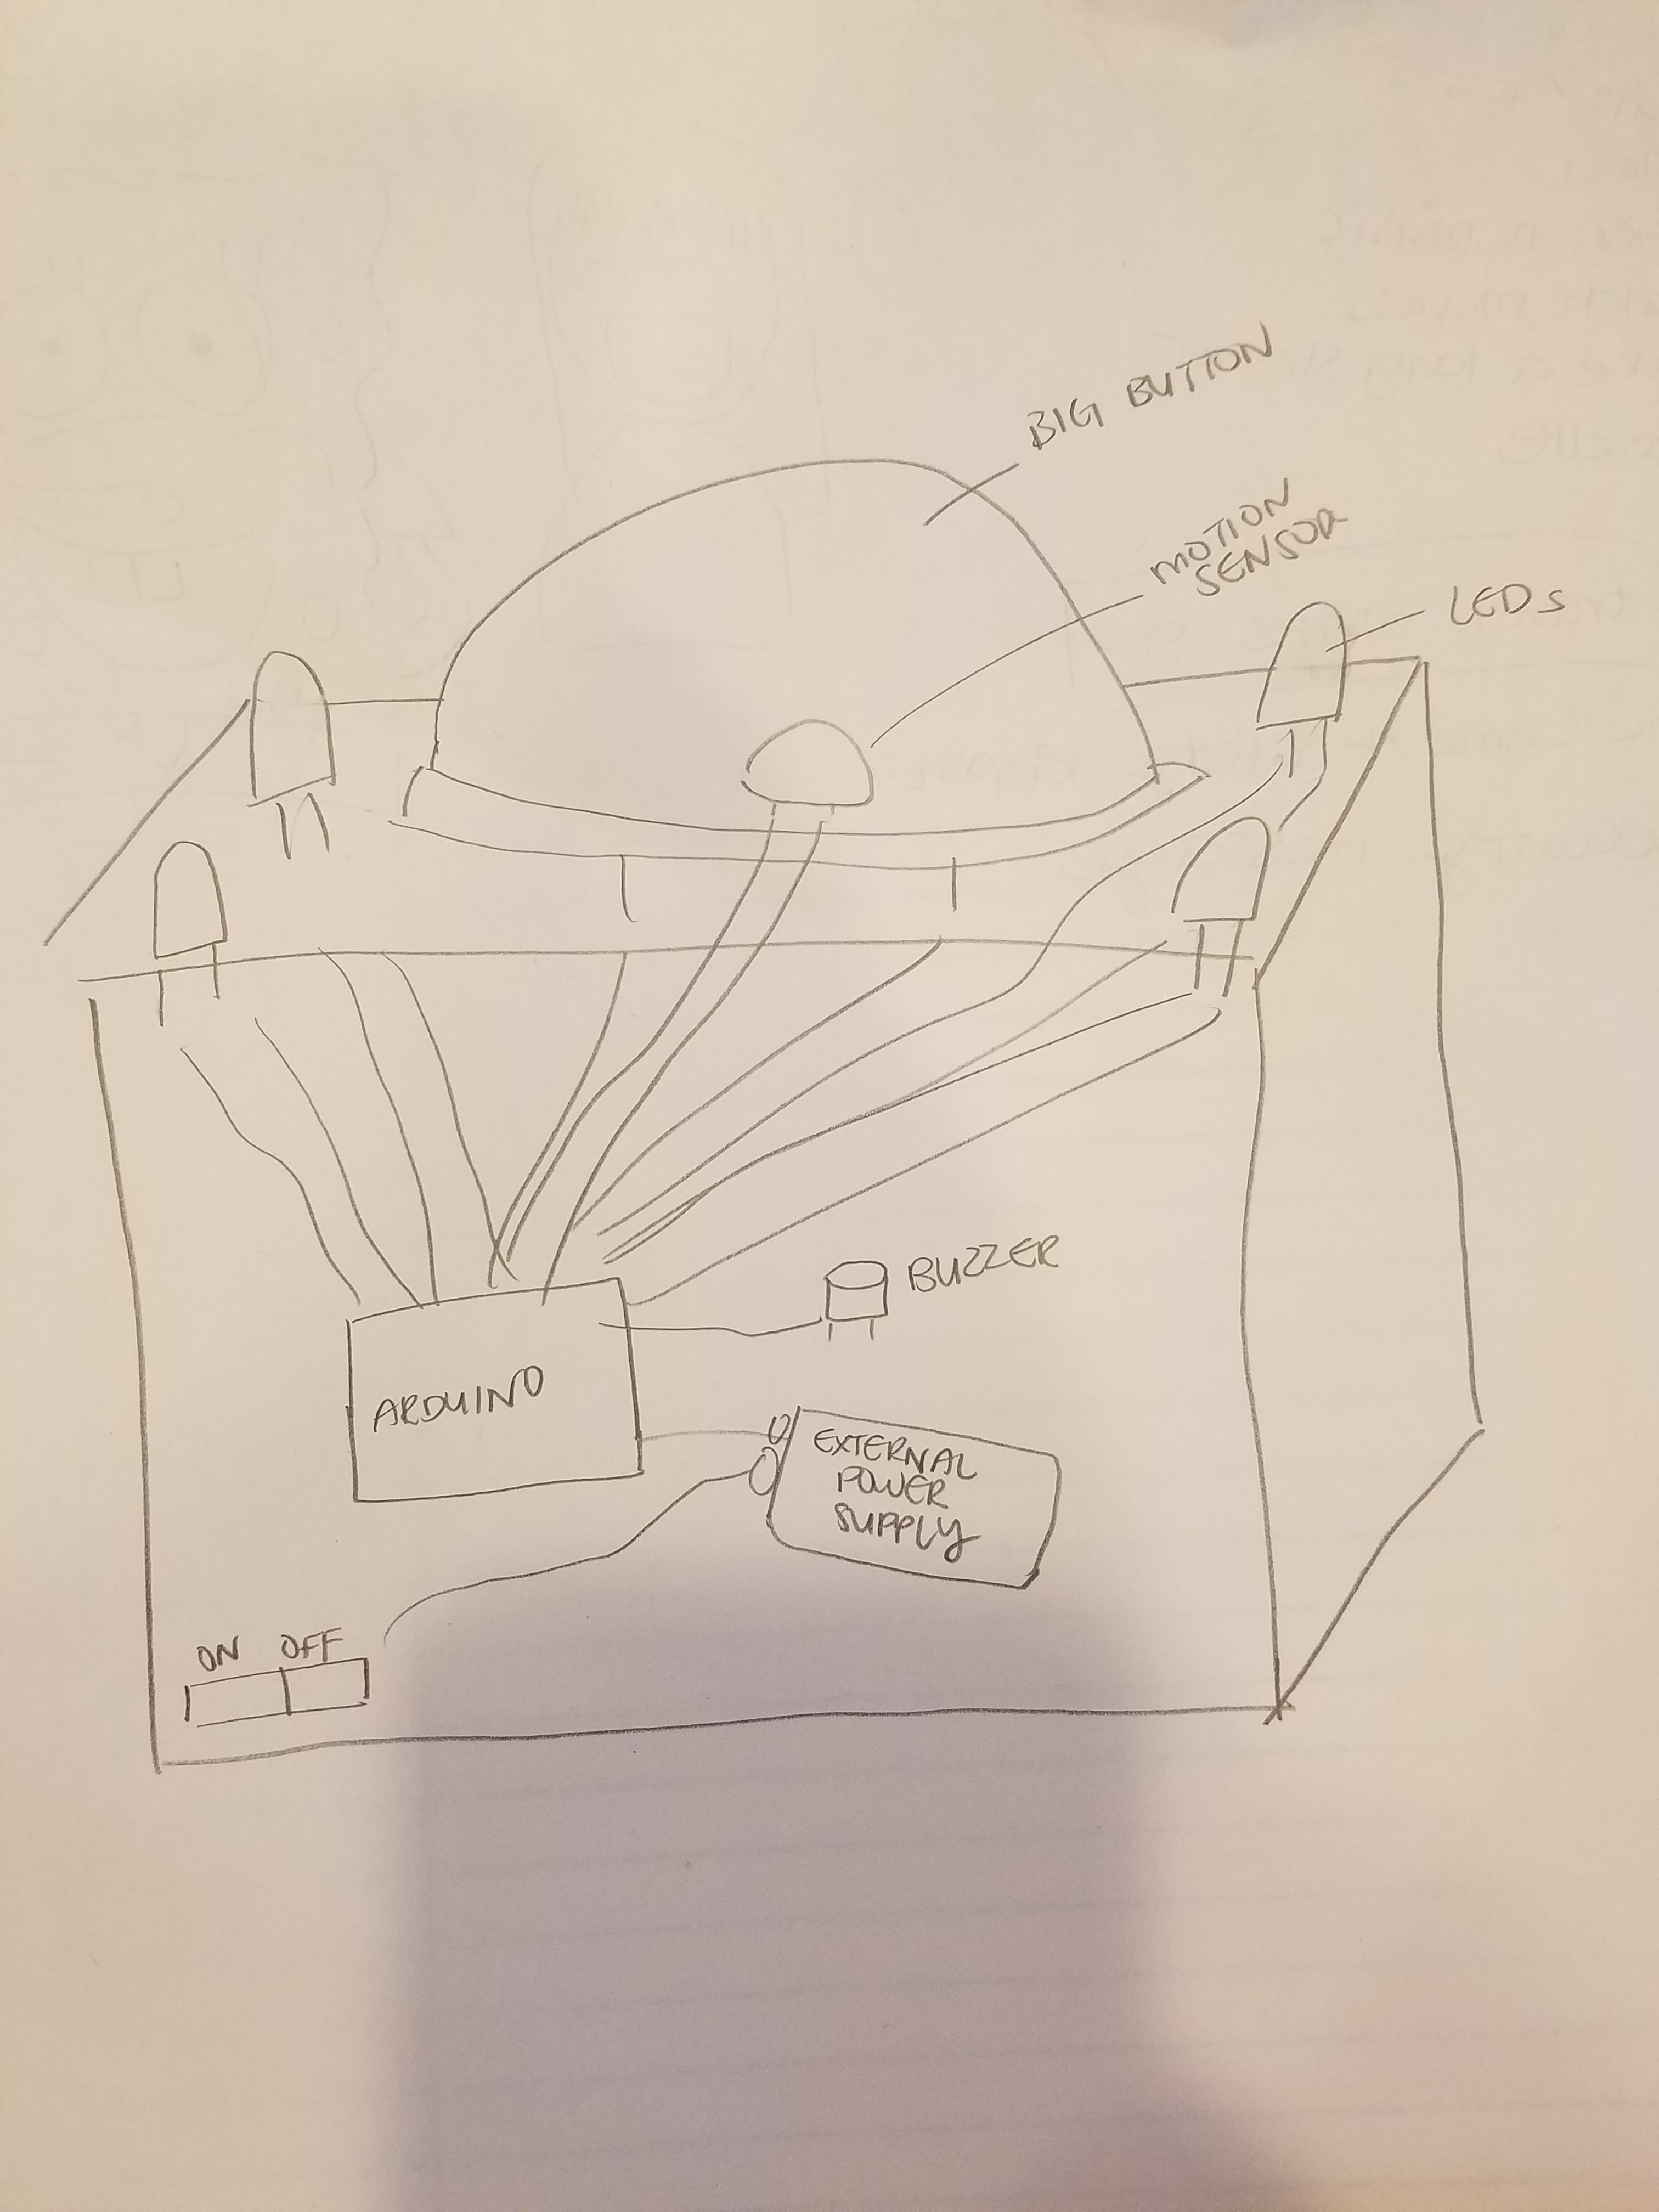 BIG BUTTON
MOTION
SENSOR
LEDs
BUZZER
ARDUINO
EXTERNAL
POWER
SUPPLY
ON OFF